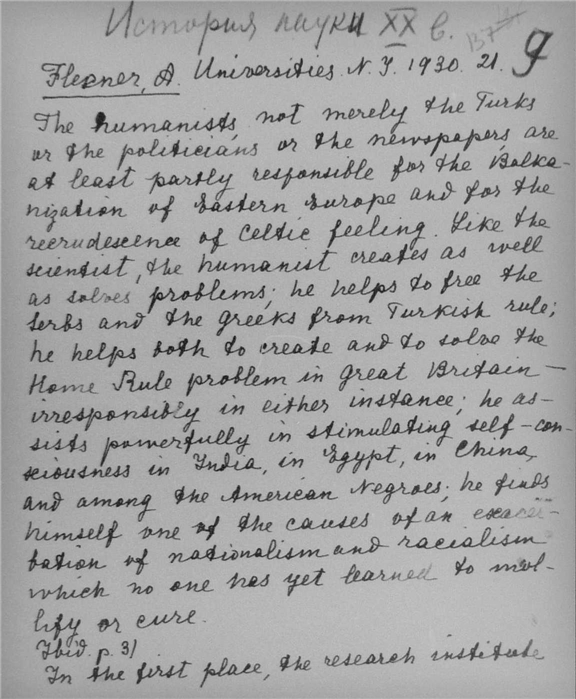 История науки XX в.
137
9
Flexner, A. Universities. N. Y. 1930. 21.
The humanists, not merely the Turks
or the politicians or the newspapers, are
at least partly responsible for the Balka-
nization of Eastern Europe and for the
recrudescence of Celtic feeling. Like the
scientist, the humanist creates as well
as solves problems; he helps to free the
Serbs and the Greeks from Turkish rule;
he helps both to create and to solve the
Home Rule problem in Great Britain —
irresponsibly in either instance; he as-
sists powerfully in stimulating self-con-
sciousness in India, in Egypt, in China,
and among the American Negroes; he finds
himself one of the causes of an exacer-
bation of nationalism and racialism
which no one has yet learned to mol-
lify or cure.
Ibid. p. 31
In the first place, the research institute